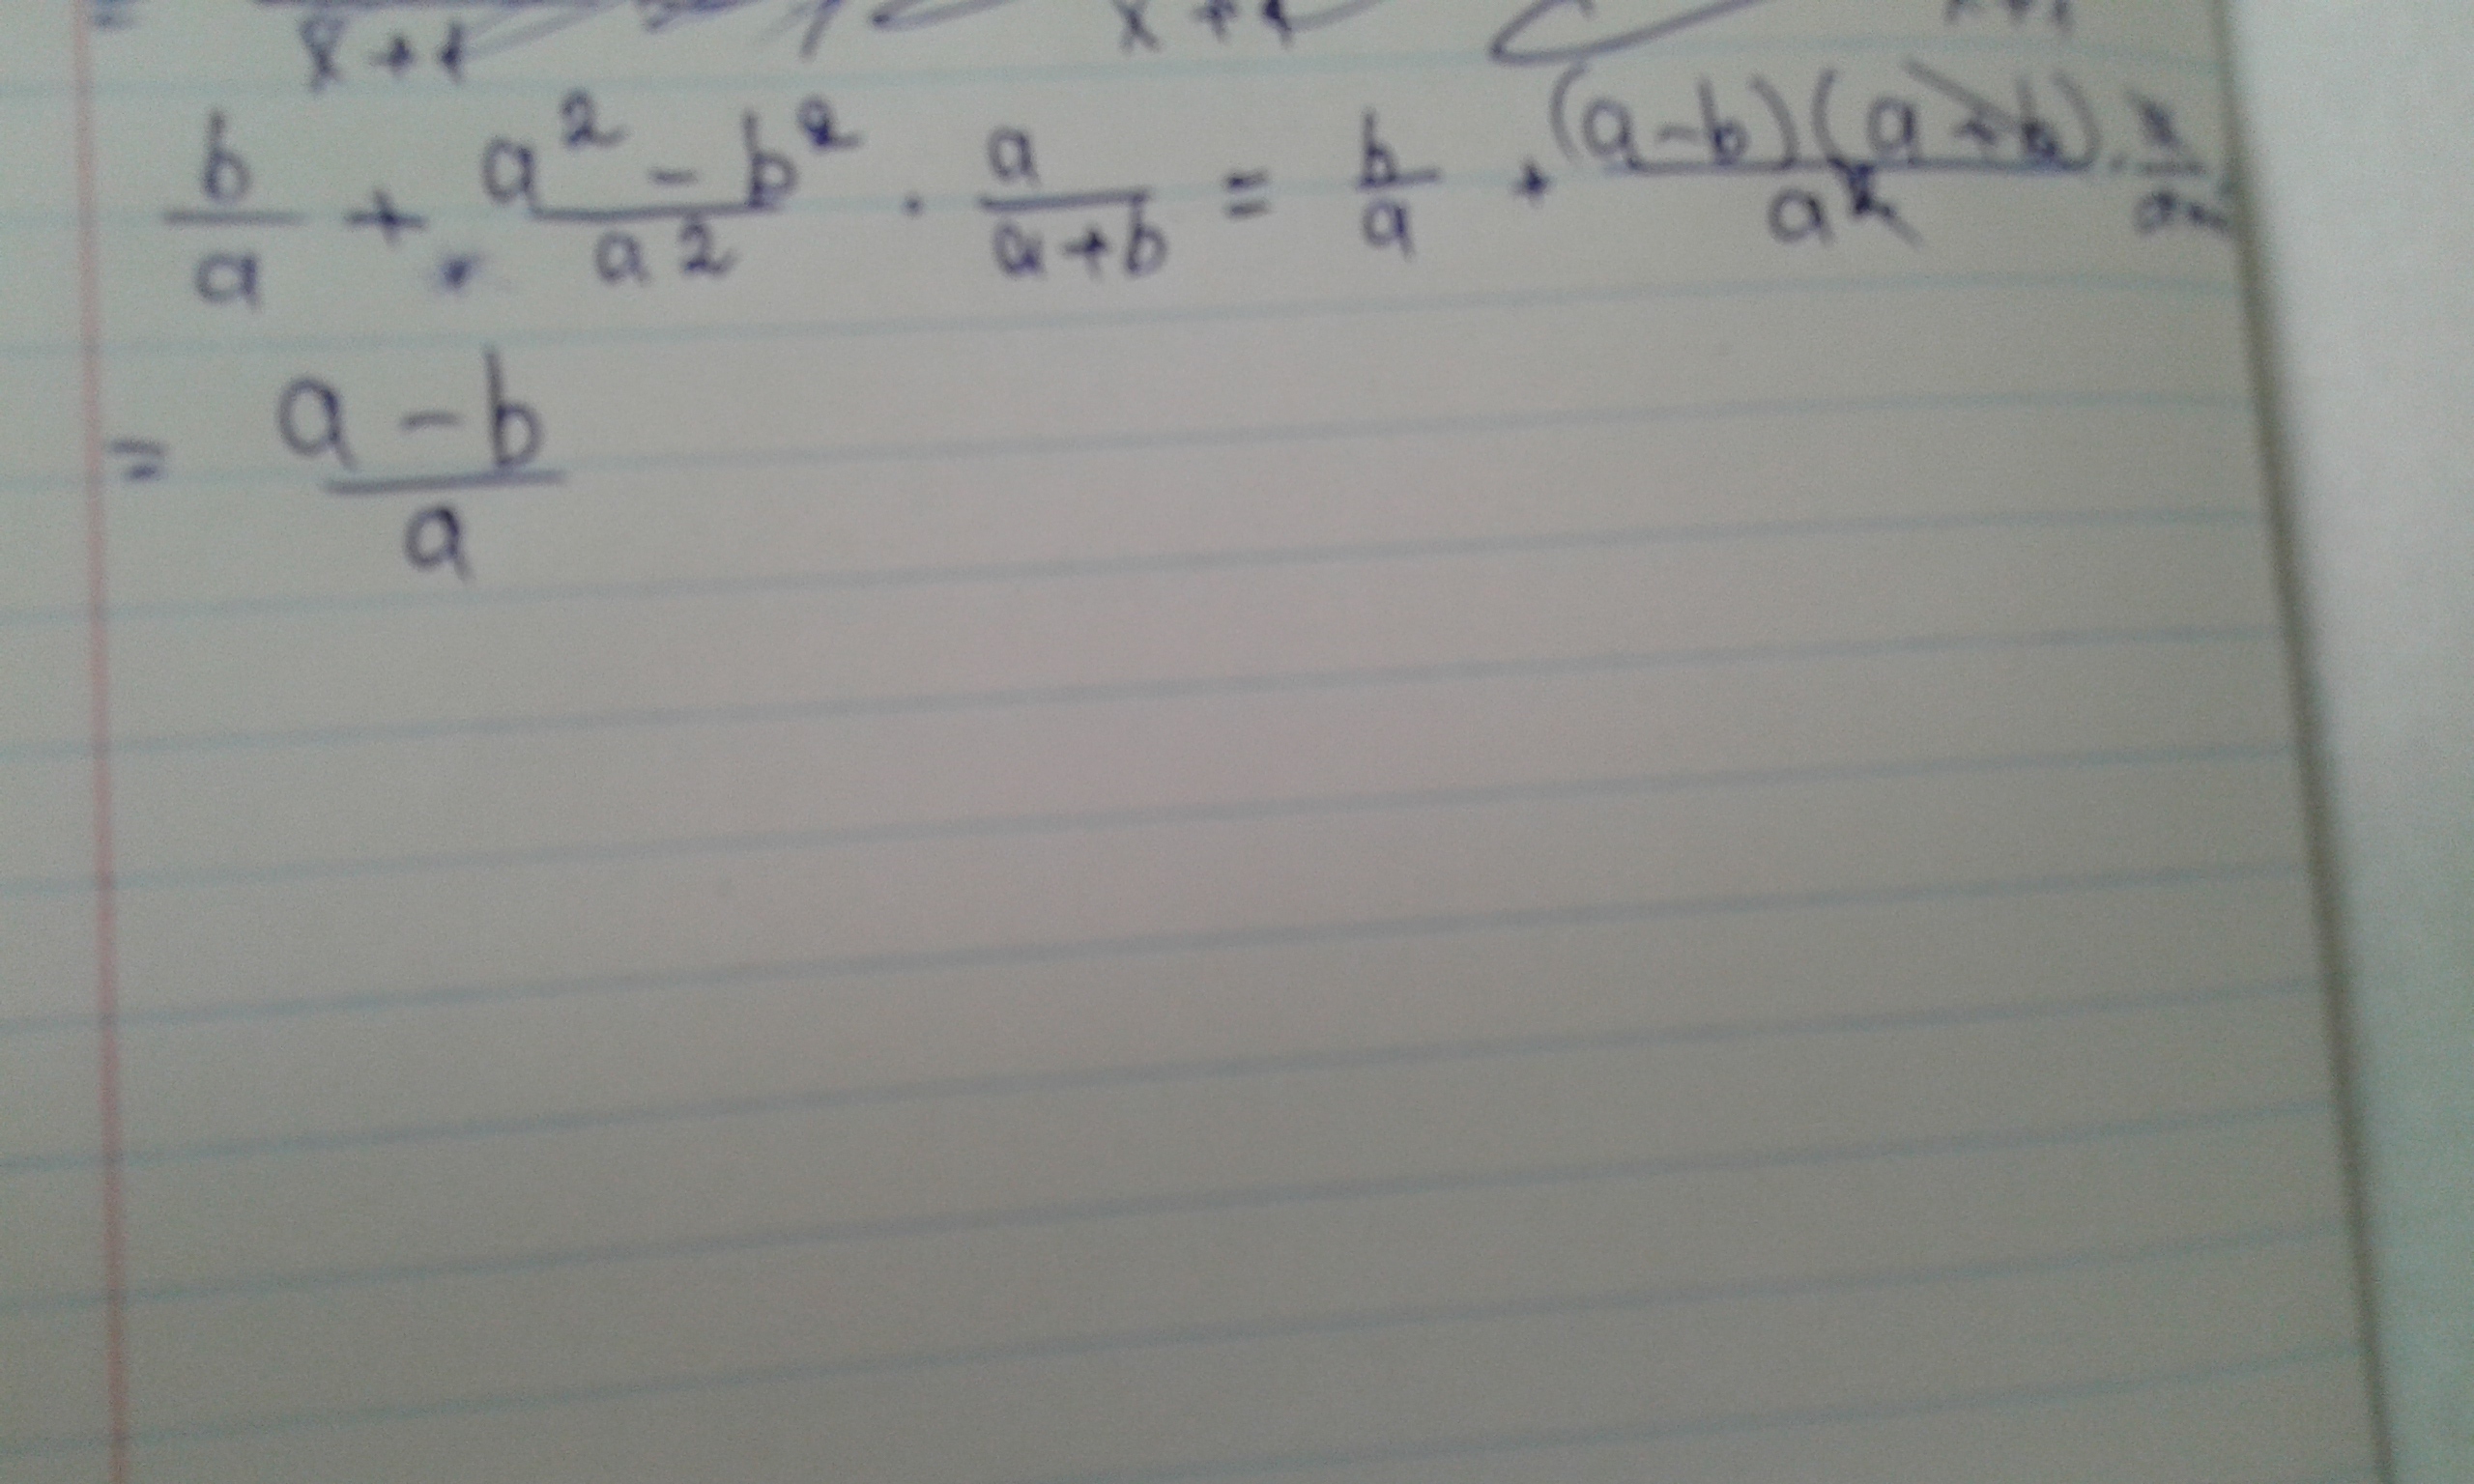 x + 1 x + 1
b/a + a² - b²/a² · a/a+b = b/a + (a-b)(a+b)/a² ·
= a - b/a